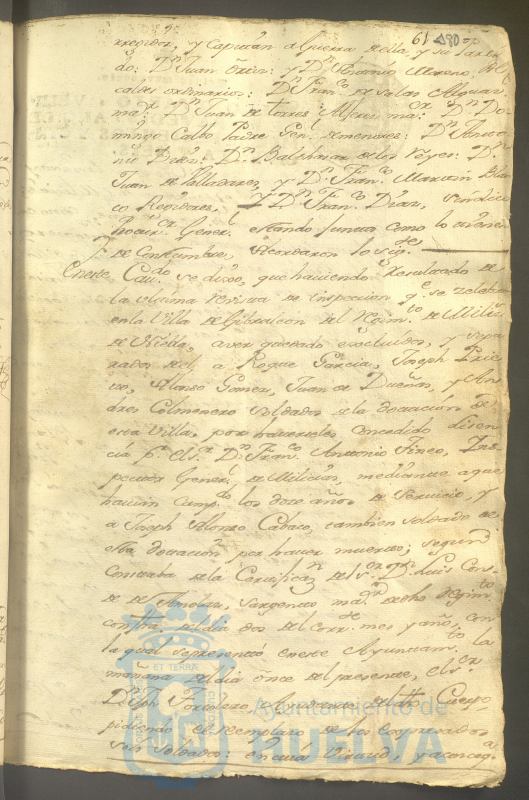 61 480
rregidor, y Capitan a Guerra de ella y su
do: Dn Juan y Dn Antonio Moreno Al
caldes ordinarios: Dn Franco de Salas Alguar
mar Dn Juan de torres Alferes mar: Dn Do
mingo Calbo Padre Genl de menores: Dn Anto
nio Dn Balthasar de los Reyes: Dn
Juan de Valladares, y Dn Franco Martin Blan
co Rexidores, y Dn Franco Diaz, Sindico
Procurr Generl estando juntos como lo
de Costumbre, Acordaron lo sigte
En este Cavdo se dixo, que haviendo Resultado de
la ultima revista de inspeccion qe se zelebro
en la Villa de Gibraleon del Regimto de Miliz
de Niebla, aver quedado excluidos, y sepa
rados de el, a Roque Garcia, Joseph Prie
to, Alonso Gomez, Juan de Dueñas, y An
dres Colmenero Soldados de la dotacion de
esta Villa, por haverseles Concedido lisen
cia pr el Sr Dn Franco Antonio Tineo, Ins
pector Generl de Milicias, mediante a que
havian cumpdo los doze años de Servicio, y
a Joseph Alonso Cabaco, tambien soldado de
dha dotacion por haver muerto; segun
Constaba de la Certificazn del Sr Dn Luis Cons
te de Amolaz, Sargento mar de dho Regimto
con fha del dia dos del corrte mes y año, con
la qual se presento en este Ayuntamto la
mañana del dia onze del presente, el Sr
Dn Jph Ayudante de dho Cuerpo
pidiendo el reemplazo de los expresados
seis soldados: en cuia Virtud, y
ET TERRÆ
Ayuntamiento de
HUELVA